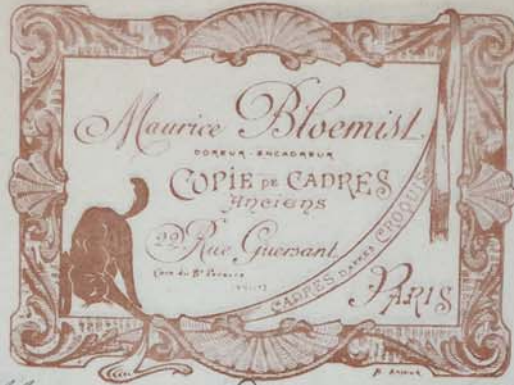 Maurice Bloemist
DOREUR-ENCADREUR
COPIE DE CADRES
Anciens
22 Rue Guersant
CADRES D'APRÈS CROQUIS
PARIS